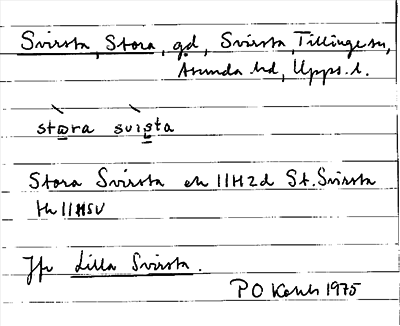 Svirsta, Stora, gd, Svirsta, Tillinge sn,
Åsunda hd, Upps. l.
stωra svista
Stora Svirsta ek 11H2d St. Svirsta
tk 11HSV
Jfr Lilla Svirsta.
PO 1975